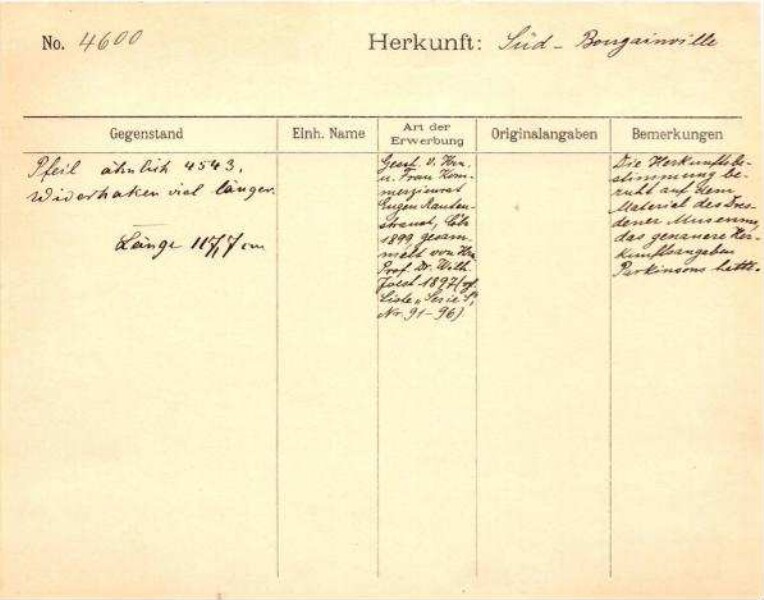 No. 4600
Herkunft: Süd - Bougainville
Gegenstand
Einh. Name
Art der
Erwerbung
Originalangaben
Bemerkungen
Pfeil ähnlich 4543,
Widerhaken viel länger.
Länge 117,7 cm
Gesch. v. Hrn.
u. Frau Kom-
merzienrat
Eugen Rauten-
strauch, Cöln
1899, gesam-
melt von Hrn.
Prof. Dr. Wilh.
Joest 1897 (cf.
Liste „Serie S",
Nr. 91-96).
Die Herkunftsbe-
stimmung be-
ruht auf dem
Material des Dres-
dener Museums,
das genauere Her-
kunftsangaben
Parkinsons hatte.